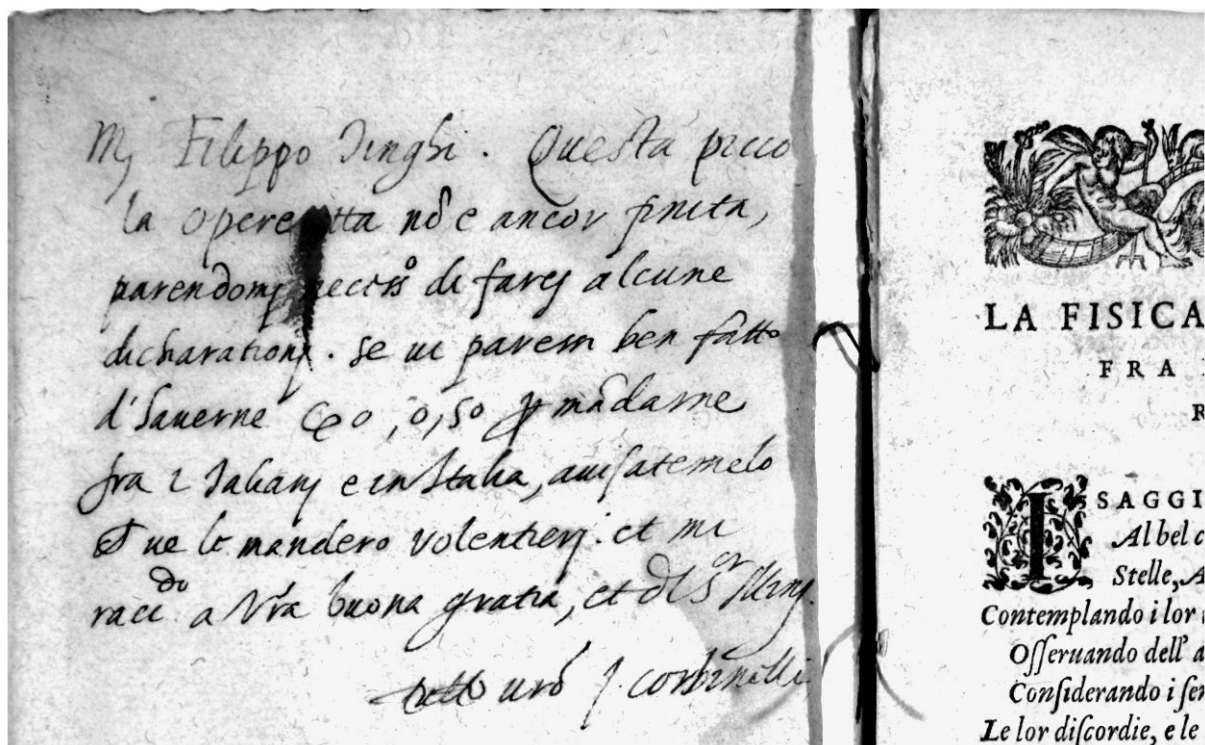 Mʳ Filippo Iunghi. Questa picco
la operetta nō e ancor finita,
parendomj necessº di farcj alcune
dicharationj. se vi parera ben fatto
d'hauerne 40, o, 50 p mādarne
fra i Italianj e in Italia, auisatemelo
et ue le mandero volentierj. et mi
racc.do a Vra buona gratia, et del S.or
tutto urō J. corbinelli
LA FISICA
FRA
R
I SAGGI
Al bel c
Stelle, A
Contemplando i lor
Osseruando dell' a
Considerando i sen
Le lor discordie, e le